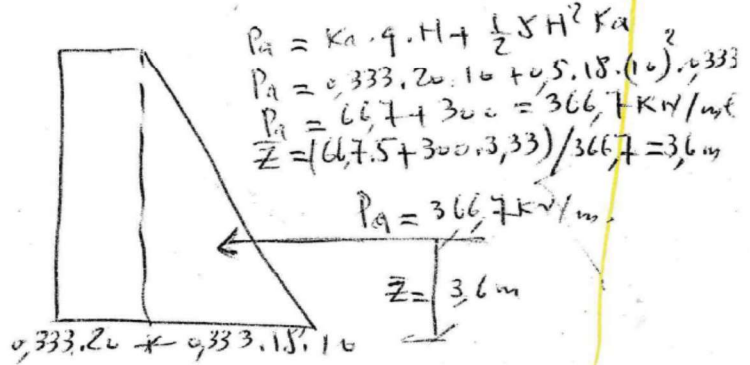 Pa = Ka.q.H + 1/2 γ H² Ka
Pa = 0,333.20.10 + 0,5.18.(10)².0,333
Pa = 66,7 + 300 = 366,7 KN/mt
Z̄ = (66,7.5 + 300.3,33)/366,7 = 3,6 m
Pa = 366,7 KN/m,
Z̄ = 3,6 m
0,333.20 0,333.18.10